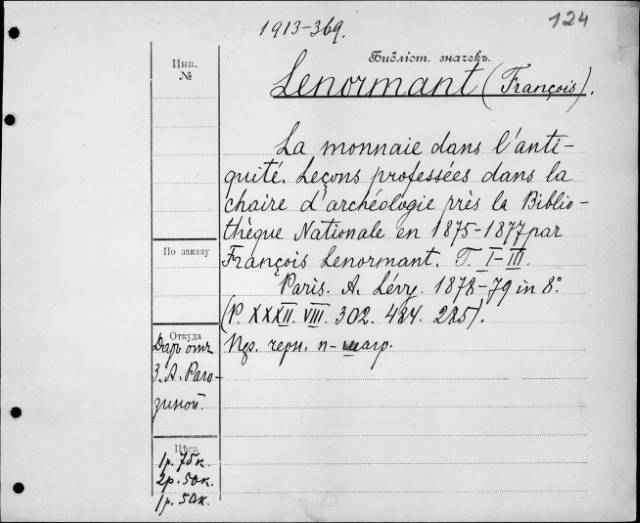 1913-369.
124
Инв. №
Библіот. значекъ.
Lenormant (François).
La monnaie dans l'anti-
quité. Leçons professées dans la
chaire d'archéologie près la Biblio-
thèque Nationale en 1875-1877 par
François Lenormant. T. I-III.
Paris. A. Lévy. 1878-79 in 8°.
(P. XXXII. VIII. 302. 484. 285).
По заказу
Откуда
Даръ отъ
З. А. Раго-
зиной.
черн.
Цѣна.
1р. 75к.
2р. 50к.
1р. 50к.